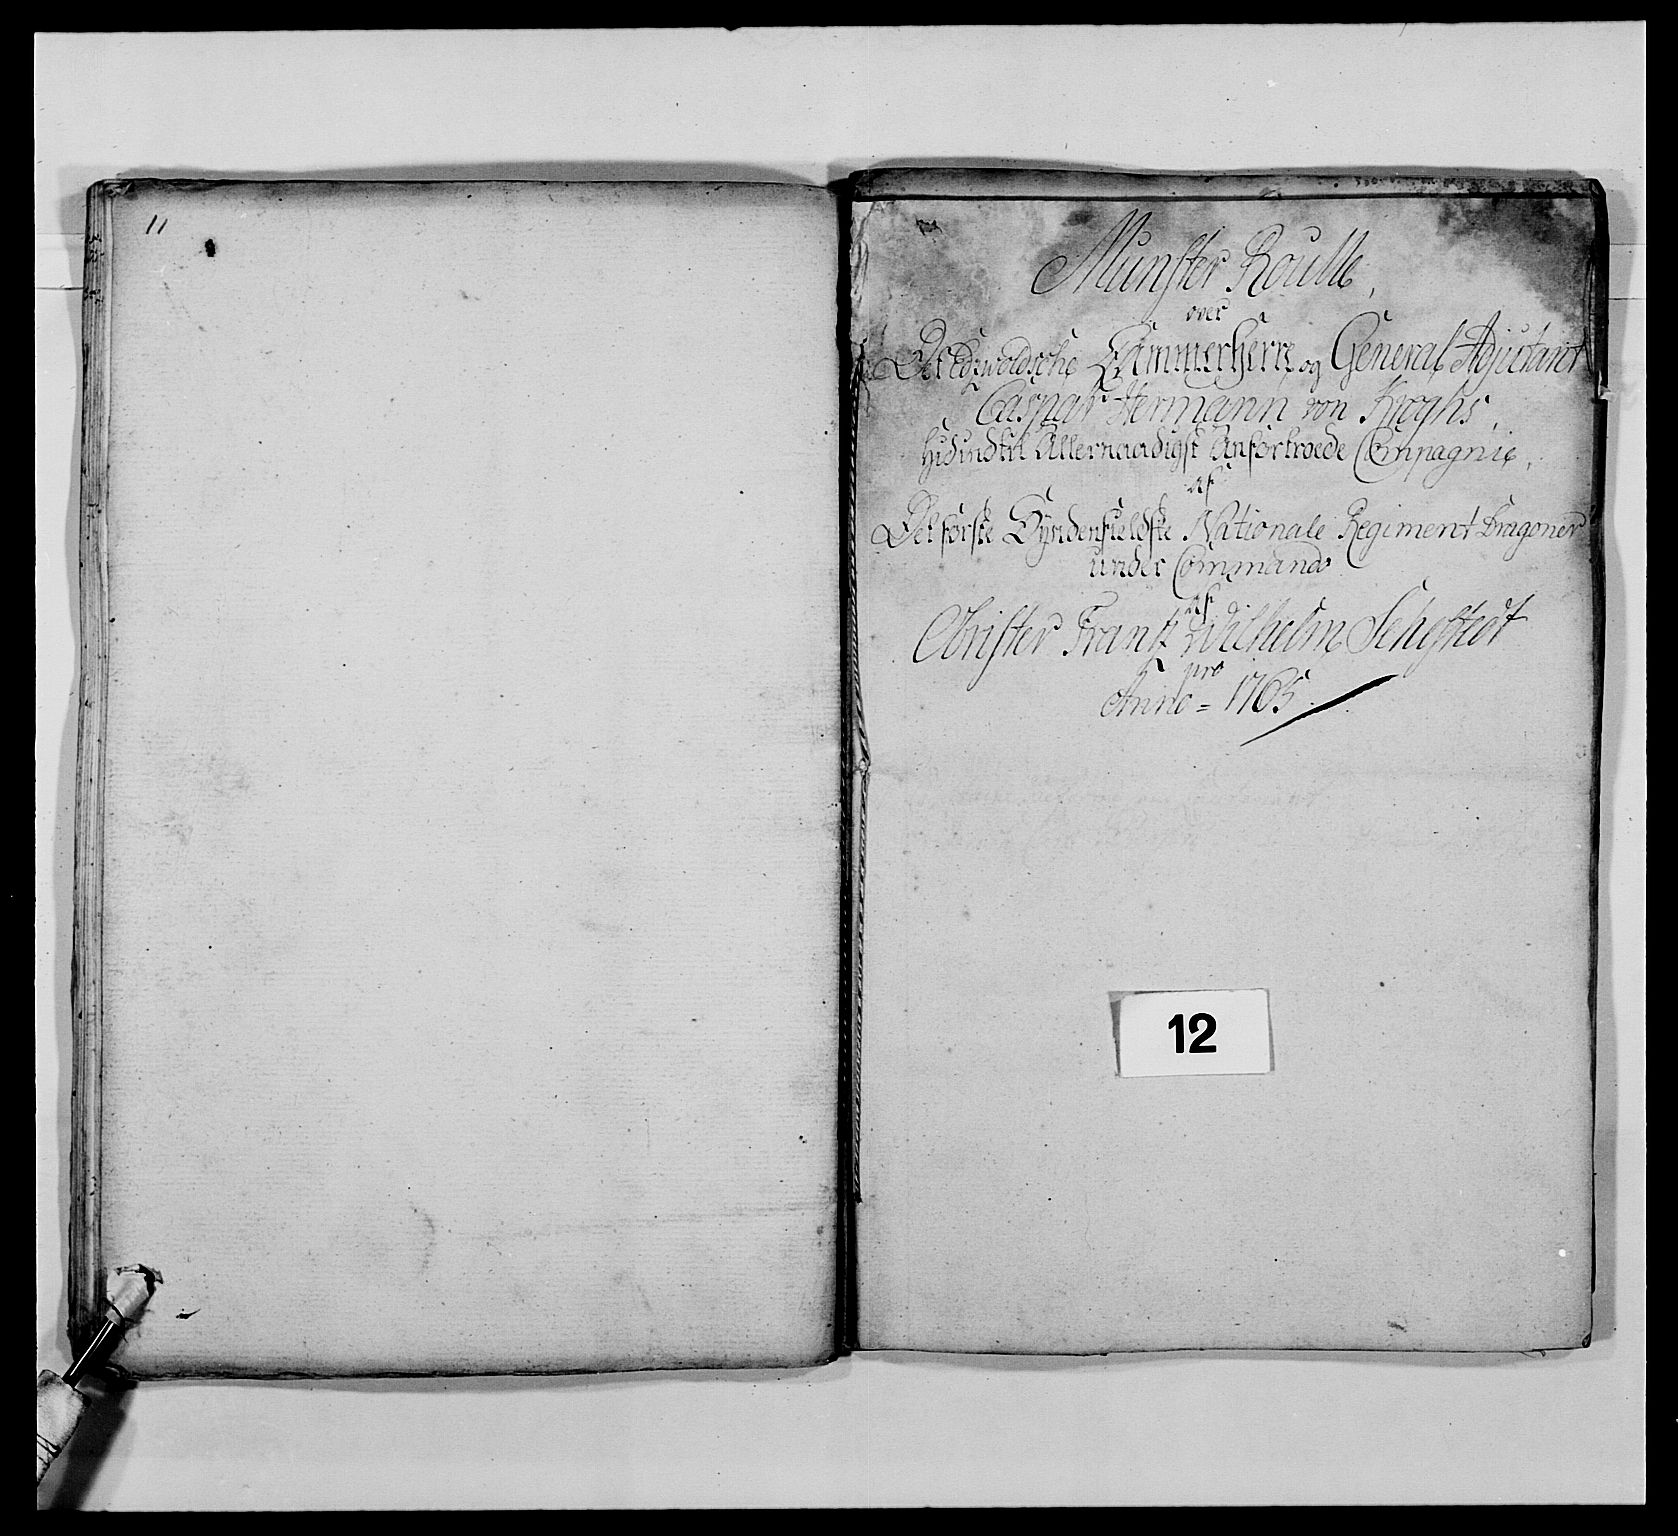 11
Munster Roulle,
over
Det Edzvoldsche Cammerherre og General Adjutant
Caspar Hermann von Kroghs,
hidindtil Allernaadigst Anfortroede Compagnie,
af
Det første Syndenfieldske Nationale Regiment Dragoner
under Commando
af
Obrister Frantz Wilhelm Sehestedt
pro
Anno = 1765.
12